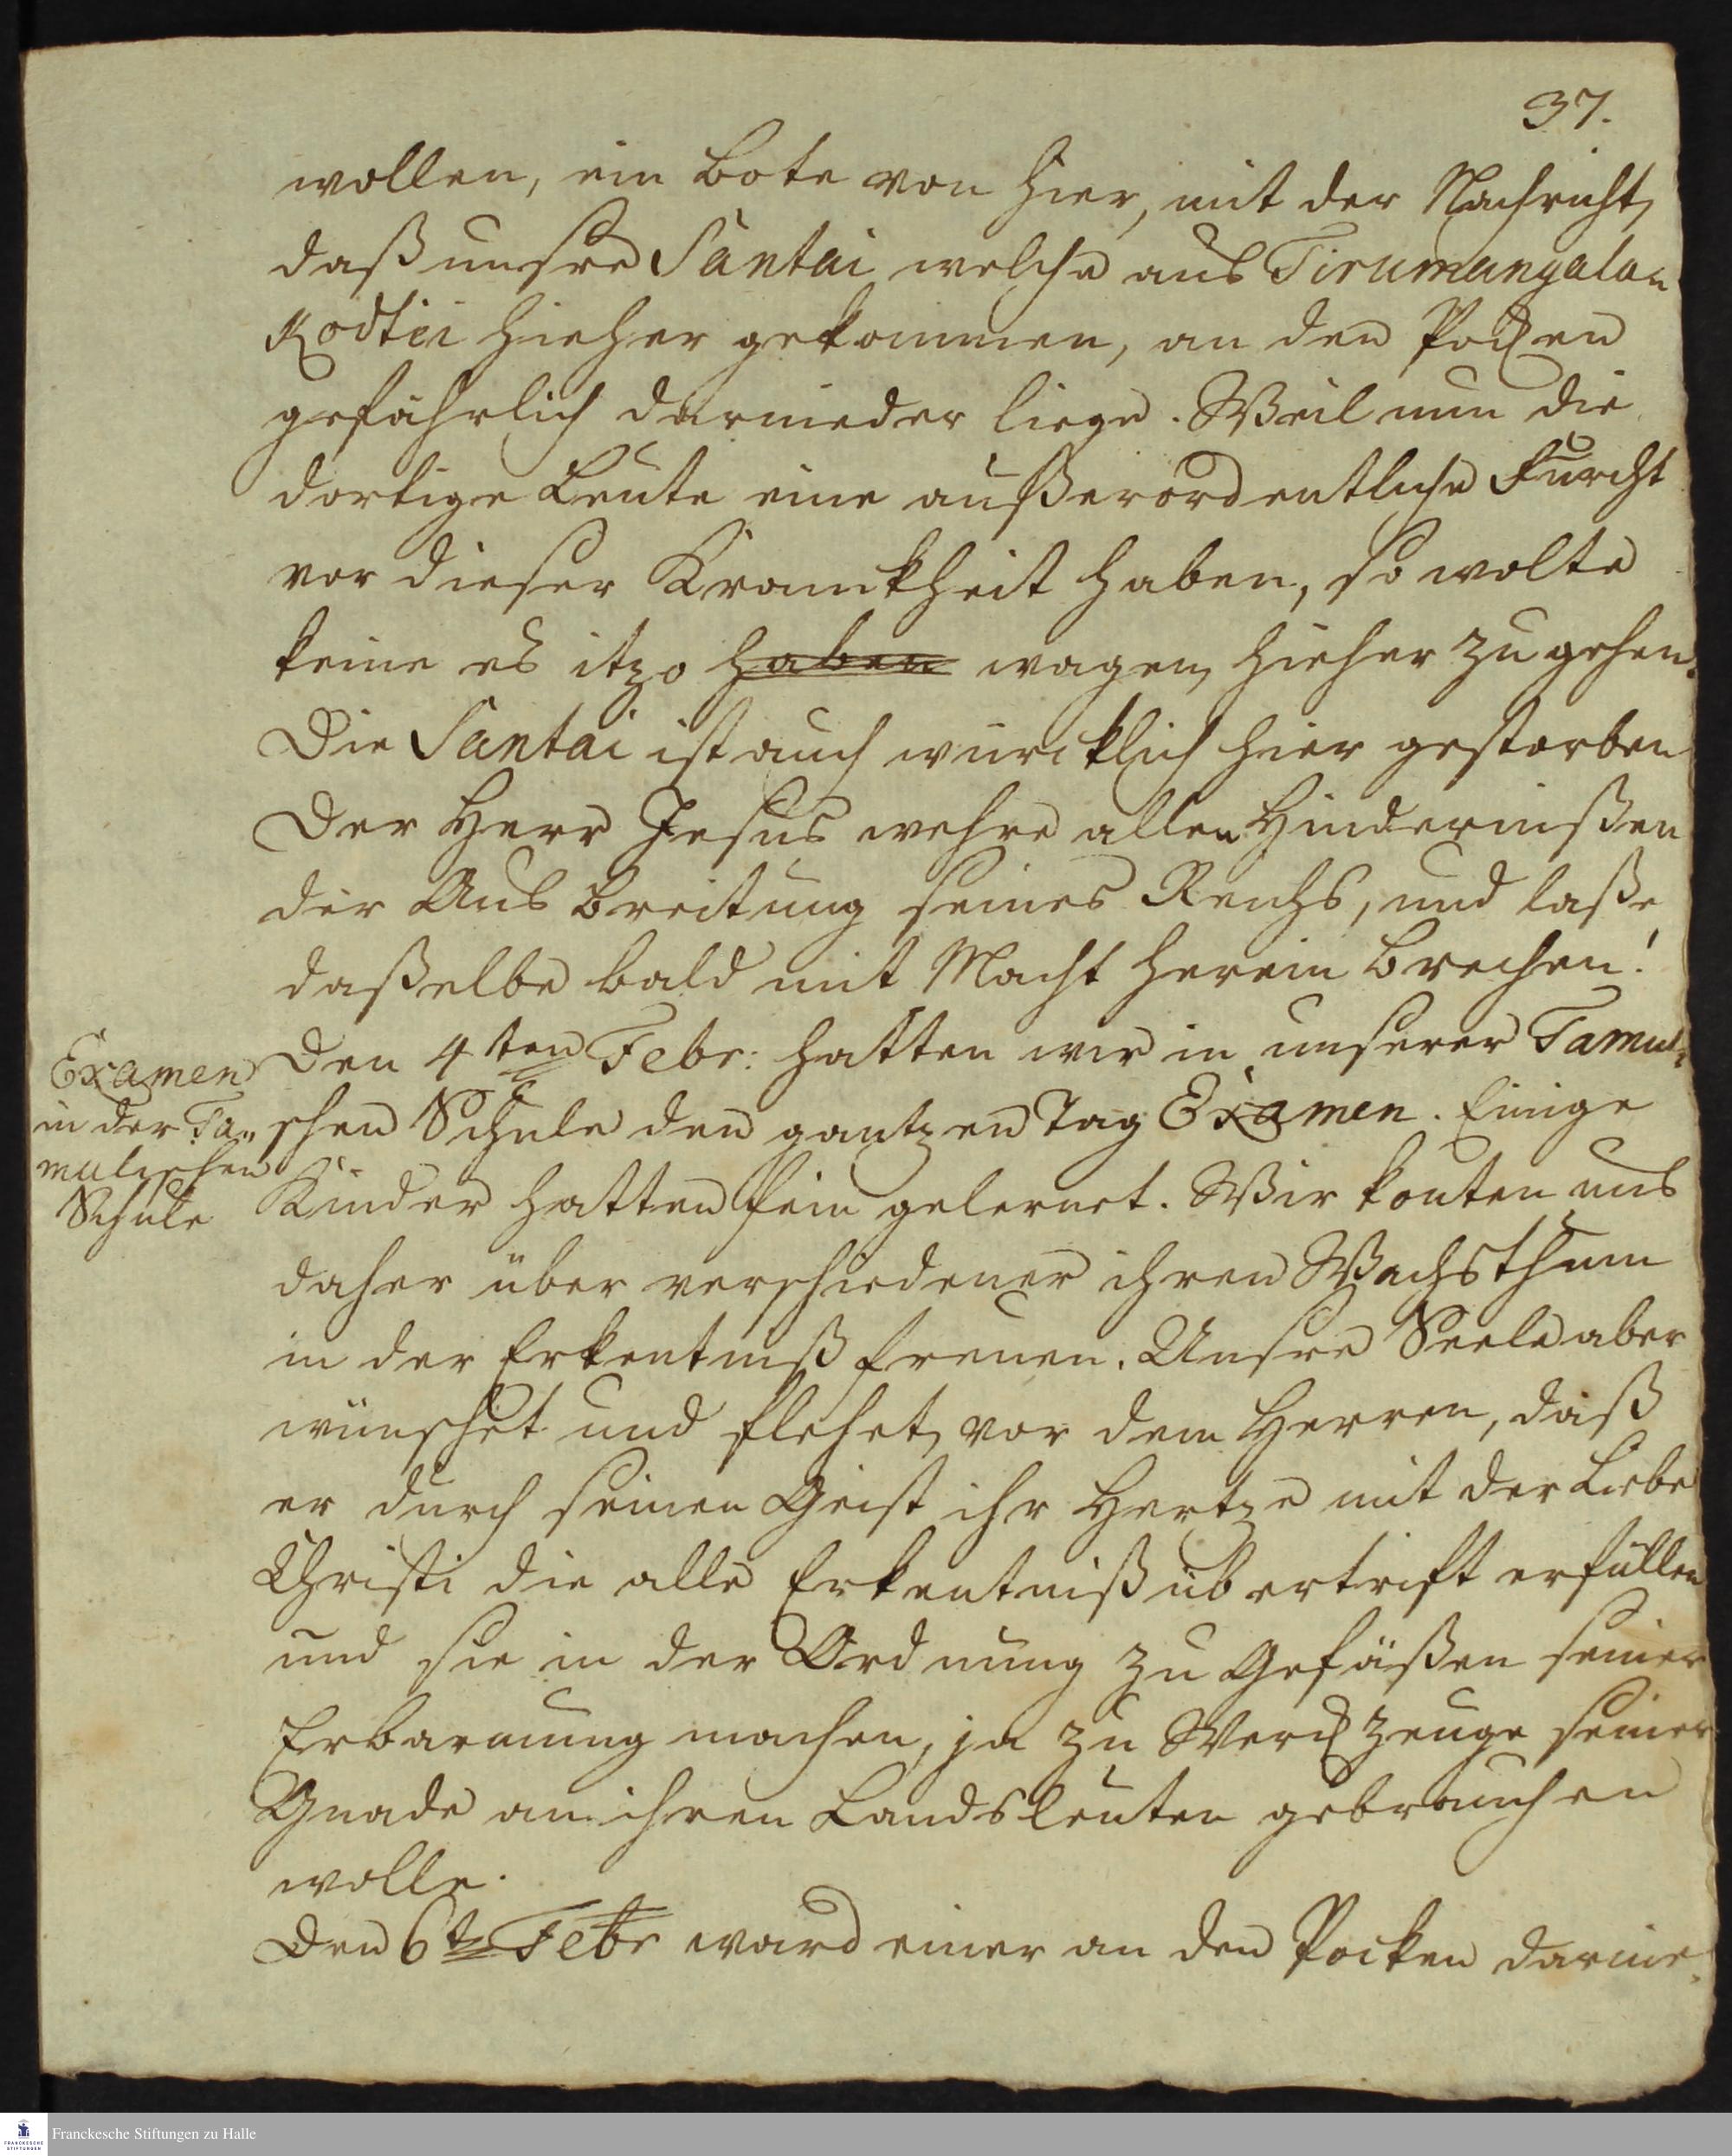 37.
wollen, ein Bote von hier, mit der Nachricht,
daß unsre Santai welche aus Tirumangala-
Kodtei hieher gekommen, an den Pocken
gefährlich darnieder liege. Weil nun die
dortige Leute eine außerordentliche Furcht
vor dieser Kranckheit haben, so wolte
keine es itzo haben wagen, hieher zu gehen.
Die Santai ist auch würcklich hier gestorben
Der Herr Jesus wehre allen Hindernißen
der Ausbreitung seines Reichs, und laße
daßelbe bald mit Macht herein brechen!
Examen
in der Ta-
mulischen
Schule
Den 4ten Febr: hatten wir in unserer Tamul-
schen Schule den gantzen Tag Examen. Einige
Kinder hatten fein gelernet. Wir konten uns
daher über verschiedener ihren Wachsthum
in der Erkentniß freuen. Unsre Seele aber
wünschet und flehet, vor dem Herren, daß
er durch seinen Geist ihr Hertze mit der Liebe
Christi die alle Erkentniß übertrift erfüllen
und sie in der Ordnung zu Gefäßen seiner
Erbarmung machen, ja zu Werckzeuge seiner
Gnade an ihren Landsleuten gebrauchen
wolle.
Den 6t Febr ward einer an den Pocken darnie-
Franckesche Stiftungen zu Halle